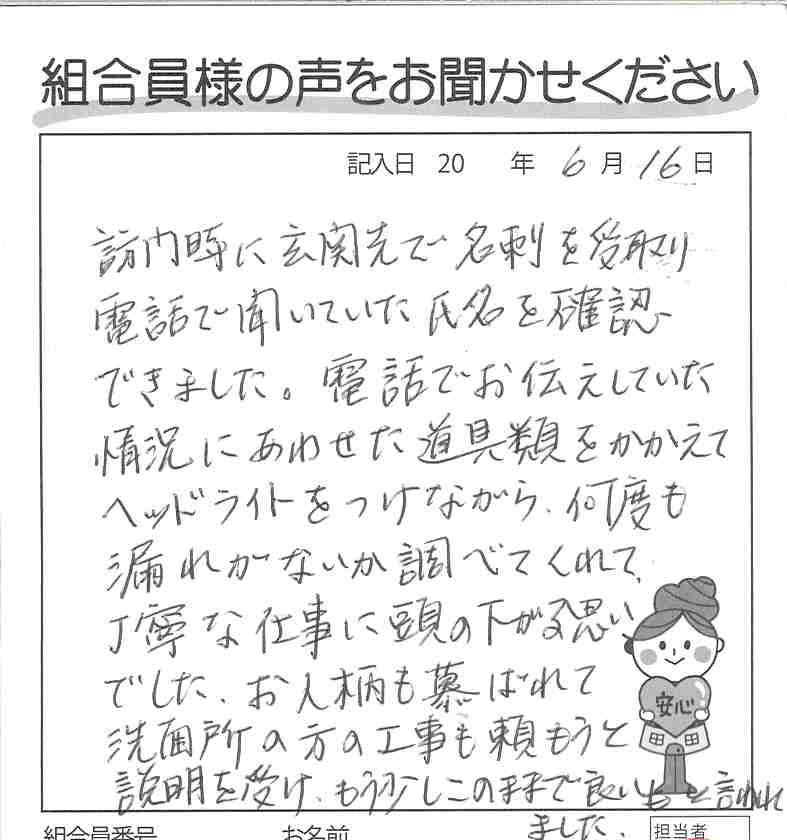 組合員様の声をお聞かせください
記入日 20 年 6 月 16 日
訪問時に玄関先で名刺を受取り
電話で聞いていた氏名を確認
できました。電話でお伝えしていた
情況にあわせた道具類をかかえて
ヘッドライトをつけながら、何度も
漏れがないか調べてくれて、
丁寧な仕事に頭の下がる思い
でした、お人柄も慕ばれて
安心
洗面所の方の工事も頼もうと
説明を受け、もう少しこのままで良いよと言われ
ました、
組合員番号 お名前 担当者